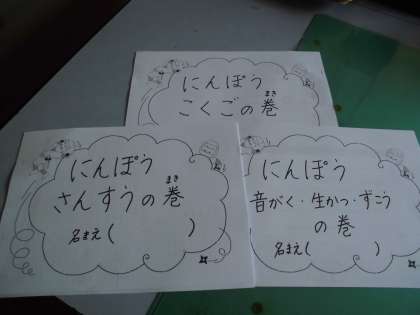 にんぽう
まき
こくごの巻
にんぽう
まき
さんすうの巻
名まえ(　　　　)
にんぽう
音がく・生かつ・ずこう
の巻
名まえ(　　　　)